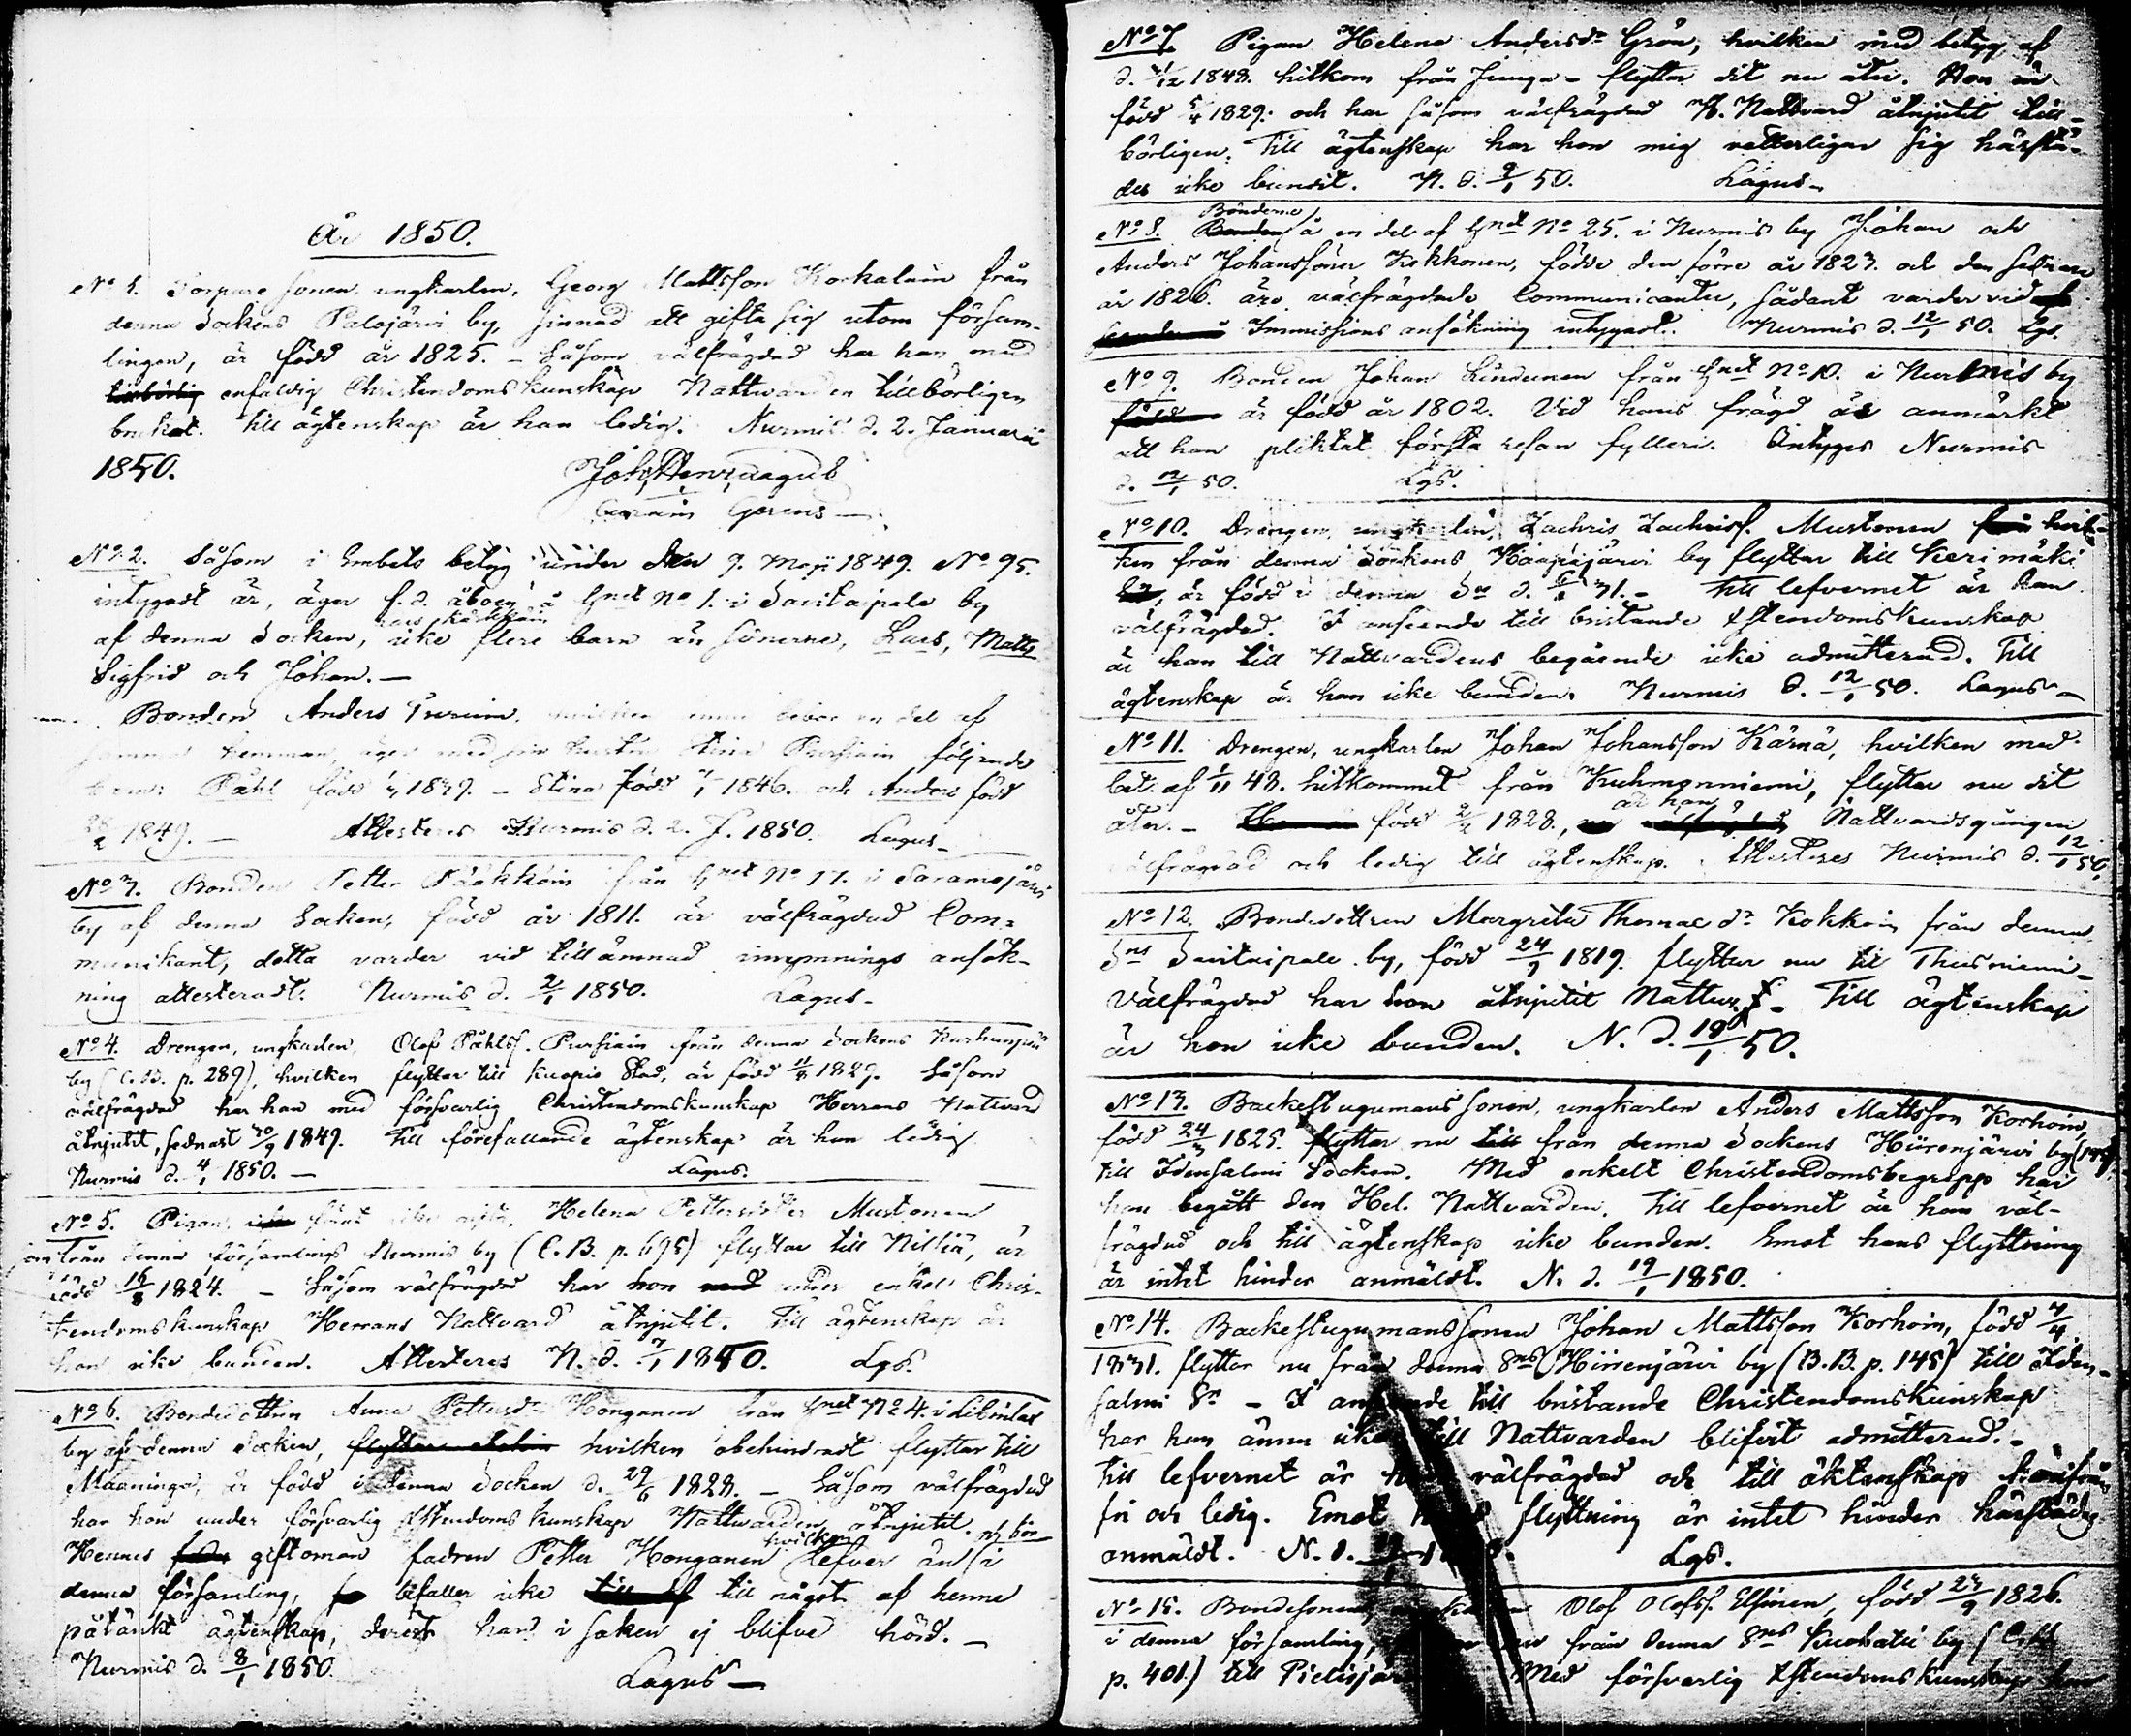 År 1850.
No 1. Torpare sonen, ungkarlen, Georg Mattsson Korkalain från
denna Sockens Palojärvi by, sinnad att gifta sig utom försam-
lingen, är född år 1825. – Såsom välfrägdad har han med
enfaldig Christendomskunskap Nattvarden tillbörligen
brukat. Till ägtenskap är han ledig. Nurmis d. 2. Januarii
1850.
Joh. Henr. Lagus
No 2. Såsom i Embets betyg under den 9. Maji 1849. No 95.
intygadt är, äger f.d. åboen å Hmet No 1. i Savikaipale by
af denna Socken, icke flere barn än sönerne, Lars, Matts
Sigfrid och Johan. –
Bonden Anders Turuin, hvilken ännu bebor en del af
samma hemman, äger med sin hustru Stina Pursiain följande
barn: Påhl född 1839. – Stina född 1846. och Anders född
1849. – Attesteras Nurmis d. 2. J. 1850. Lagus –
No 3. Bonden Petter Pääkköin från Hmet No 17. i Saramojärvi
by af denna Socken, född år 1811. är välfrägdad Com-
munikant, detta varder vid tillämnad inrymnings ansök-
ning attesteradt. Nurmis d. 2/1 1850. Lagus –
No 4. Drengen, ungkarlen, Olof Påhlss. Pursiain från denna Sockens
by (C.B. p. 289), hvilken flyttar till Kuopio Stad, är född 1829. Såsom
välfrägdad har han med försvarlig Christendomskunskap Herrans Nattvard
åtnjutit, sednast 30/9 1849. Till förefallande ägtenskap är han ledig
Nurmis d. 4/1 1850. – Lagus.
No 5. Pigan, Helena Pettersdotter Mustonen
från denna församlings Nurmis by (C.B. p. 695) flyttar till Nilsiä, är
född 16/8 1824. – Såsom välfrägdad har hon under enkel Chris-
tendomskunskap Herrans Nattvard åtnjutit. Till ägtenskap är
hon icke bunden. Attesteres N. d. 7/1 1850. Lgs.
No 6. Bondedottren Anna Pettersdr Honganen från Hmet No 4. i
by af denna Socken, hvilken obehindradt flyttar till
Maaninga, är född i denna Socken d. 29/6 1828. – Såsom välfrägdad
har hon under försvarlig Xstendomskunskap Nattvarden åtnjutit.
Hennes giftoman fadren Petter Honganen hvilken lefver än i
denna församling, bifaller icke till något af henne
påtänkt ägtenskap, derest han i saken ej blifve hörd. –
Nurmis d. 8/1 1850. Lagus –
No 7. Pigan Helena Andersdr Grön, hvilken med betyg af
d. 1848. hitkom från Jiunga – flyttar dit nu åter. Hon är
född 5/4 1829. och har såsom välfrägdad H. Nattvard åtnjutit till-
börligen. Till ägtenskap har hon mig vetterligen sig härstä-
des icke bundit. N. d. 9/1 50. Lagus –
No 8. Bönderne å en del af Hmet No 25. i Nurmis by Johan och
Anders Johanssöner Kekkonen, födde den förre år 1823. och den sednare
år 1826. äro välfrägdade Communicanter, sådant varder vid
Immissions ansökning intygadt. Nurmis d. 12/1 50. Lgs.
No 9. Bonden Johan Lindunen från Hmet No 10. i Nurmis by
är född år 1802. Vid hans frägd är anmärkt
att han pliktat första resan fylleri. Intyges Nurmis
d. 12/1 50. Lgs.
No 10. Drengen, ungkarlen, Zachris Zachriss. Mustonen hvil-
ken från denna Sockens Haapajärvi by flyttar till Kerimäki
är född i denna Sn d. 31. – Till lefvernet är han
välfrägdad. I anseende till bristande Xstendomskunskap
är han till Nattvardens begående icke admitterad. Till
ägtenskap är han icke bunden. Nurmis d. 12/1 50. Lagus –
No 11. Drengen, ungkarlen Johan Johansson Kärnä, hvilken med
bet. af 1/11 48. hitkommit från Kuhmoniemi, flyttar nu dit
åter. – född 1828., är han Nattvardsgången
välfrägdad och ledig till ägtenskap. Attesteres Nurmis d. 12/1 50.
No 12. Bondedottren Margreta Thomae dr Kokkoin från denna
Sns Savikaipale by, född 24/7 1819. flyttar nu til Thusniemi –
Välfrägdad har hon åtnjutit Nattv. – Till ägtenskap
är hon icke bunden. N. d. 19/1 50.
No 13. Backestugumans sonen, ungkarlen Anders Mattsson Korhoin,
född 24/3 1825. flyttar nu från denna Sockens Hiirenjärvi by
till Idensalmi Socken. Med enkelt Christendomsbegripp har
han begått den Hel. Nattvarden. Till lefvernet är han väl-
frägdad och till ägtenskap icke bunden. Emot hans flyttning
är intet hinder anmäldt. N. d. 19/1 1850.
No 14. Backestugumanssonen Johan Mattsson Korhoin, född 4/4
1831. flyttar nu från denna Sns Hiirenjärvi by (B.B. p. 145) till Iden-
salmi Sn – I anseende till bristande Christendomskunskap
har han ännu icke till Nattvarden blifvit admitterad. –
Till lefvernet är han välfrägdad och till äktenskap
fri och ledig. Emot hans flyttning är intet hinder härstädes
anmäldt. N. d. Lgs.
No 15. Bondesonen Olof Olofss. Elfvinen, född 23/9 1826.
i denna församling, från denna Sns Kuohatti by (C.B.
p. 401.) till Pielisjärvi. Med försvarlig Xstendomskunskap har